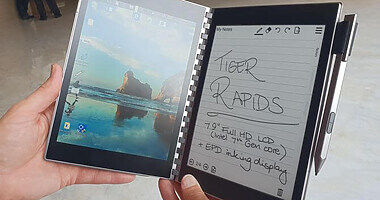 My Notes
TIGER
RAPIDS
7.9" Full HD LCD
(Intel 7th Gen core)
+ EPD inking display
24